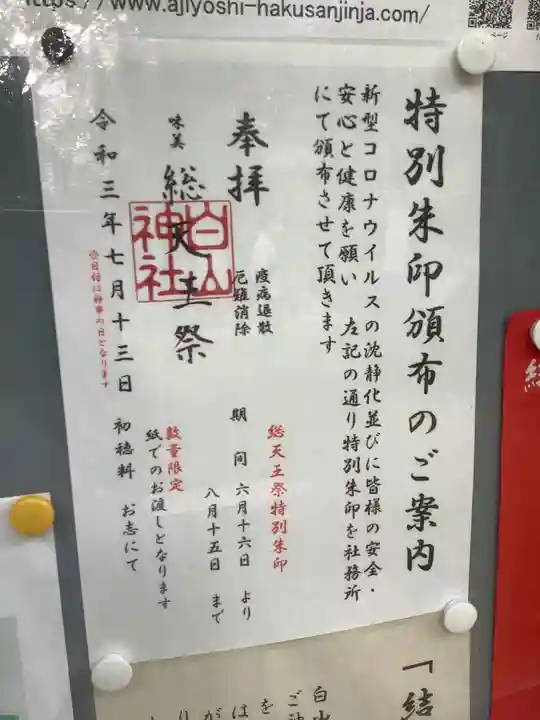 https://www.ajiyoshi-hakusanjinja.com/
ページ
特別朱印頒布のご案内
新型コロナウイルスの沈静化並びに皆様の安全・
安心と健康を願い 左記の通り特別朱印を社務所
にて頒布させて頂きます
奉拝
疫病退散
厄難消除
味美 総天王祭
白山
神社
令和三年七月十三日
◎日付は神事の日となります
総天王祭特別朱印
期 間 六月十六日 より
八月十五日 まで
数量限定
紙でのお渡しとなります
初穂料 お志にて
「結
白山